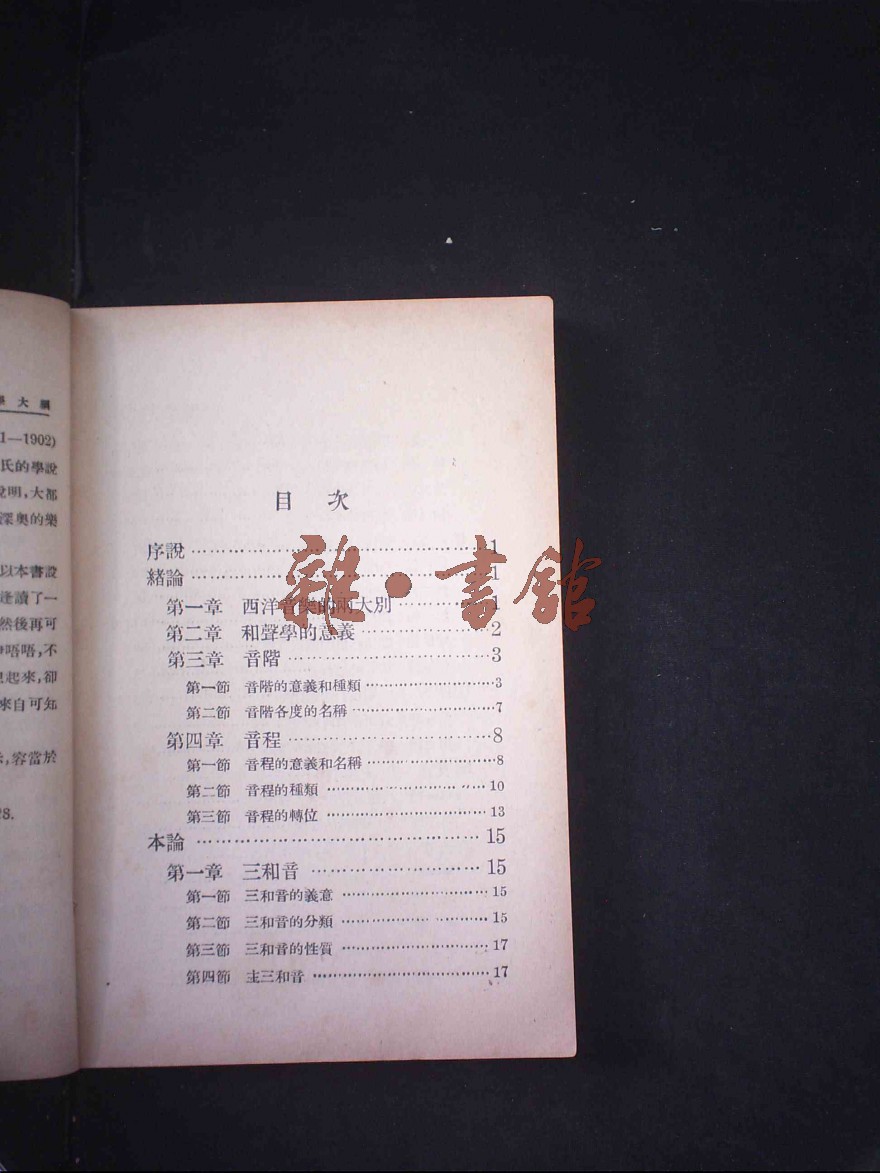 大綱
1—1902)
氏的學說
說明,大都
深奧的樂
以本書說
逢讀了一
然後再可
唔唔,不
起來,卻
來自可知
,容當於
28.
目次
序說…………………………………………1
緒論…………………………………………1
第一章 西洋音樂的兩大別…………………1
第二章 和聲學的意義………………………2
第三章 音階…………………………………3
第一節 音階的意義和種類…………………3
第二節 音階各度的名稱……………………7
第四章 音程…………………………………8
第一節 音程的意義和名稱…………………8
第二節 音程的種類…………………………10
第三節 音程的轉位…………………………13
本論…………………………………………15
第一章 三和音………………………………15
第一節 三和音的義意………………………15
第二節 三和音的分類………………………15
第三節 三和音的性質………………………17
第四節 主三和音……………………………17
雜·書館